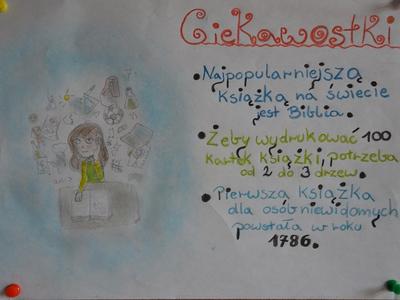 Ciekawostki
• Najpopularniejszą
książką na świecie
jest Biblia.
• Żeby wydrukować 100
kartek książki, potrzeba
od 2 do 3 drzew.
• Pierwsza książka
dla osób niewidomych
powstała w roku
1786.